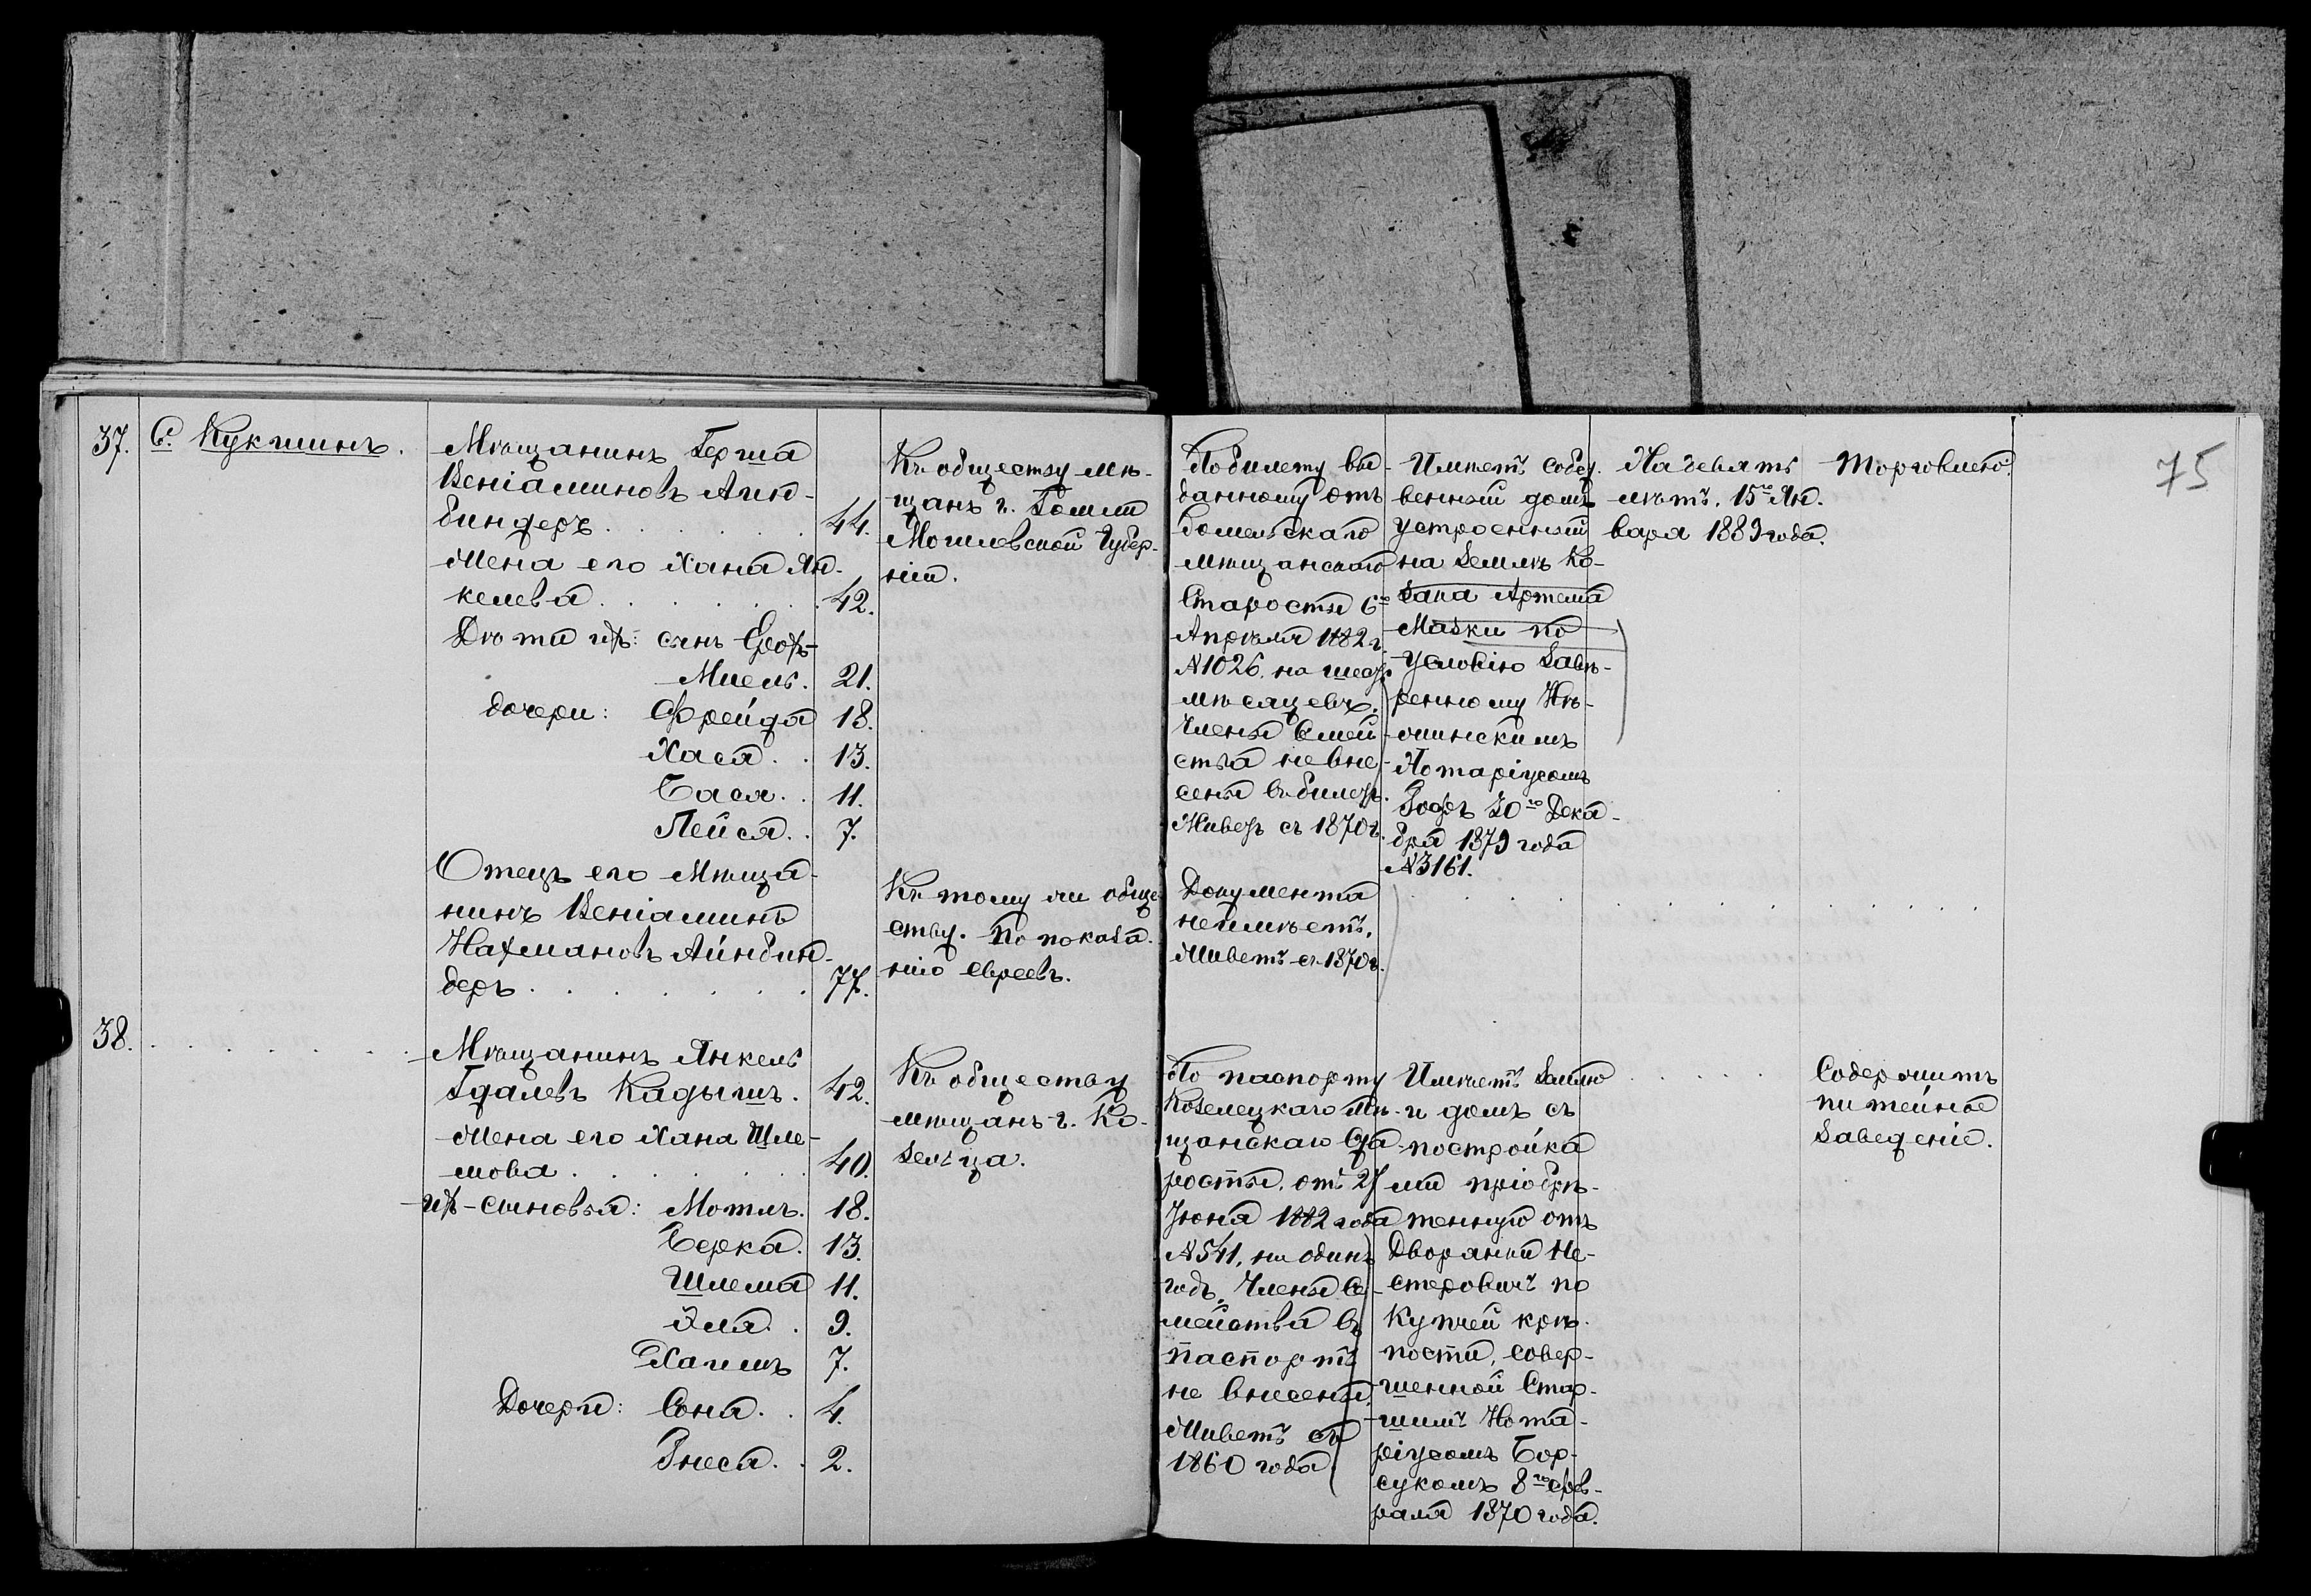 75
37.
С. Кукшинъ.
Мѣщанинъ Герша
Веніаминовъ Айн-
биндеръ
44.
Жена его Хана Ян-
келева
42.
Дѣти ихъ: сынъ Ерохъ-
Миель.
21.
дочери: Фрейда
18.
Хася
13.
Бася
11.
Пейся
7.
Отецъ его Мѣща-
нинъ Веніаминъ
Нахмановъ Айнбин-
деръ
77.
Къ обществу мѣ-
щанъ г. Гомля
Могилевской Губер-
ніи.
Къ тому же обще-
ству. По показа-
нію евреевъ.
По билету вы-
данному отъ
Гомельскаго
мѣщанскаго
Старосты 6го
Апрѣля 1882 г.
№1026. на шесть
мѣсяцевъ.
Члены Семей-
ства не вне-
сены въ билетъ.
Живетъ съ 1870 г.
Документа
не имѣетъ.
Живетъ съ 1870 г.
Имѣетъ собст.
венный домъ
устроенный
на землѣ Ко-
зака Артема
Мазки по
условію завѣ-
ренному Нѣ-
жинскимъ
Нотаріусомъ
30го Дека-
бря 1879 года
№3161.
На девять
лѣтъ. 15го Ян.
варя 1889 года.
Торговлею.
38.
Мѣщанинъ Янкель
Гдалевъ Кадышъ.
42.
Жена его Хана Шле-
мова
40.
ихъ-сыновья: Мотль.
18.
Берка.
13.
Шлема
11.
Эля.
9.
Хаимъ
7.
Дочери: Соня.
4.
Гнеса.
2.
Къ обществу
мѣщанъ г. Ко-
зельца.
По паспорту
Козелецкаго Мѣ-
щанскаго Ста-
росты. отъ 27
Іюня 1882 года
№541, на одинъ
годъ. Члены Се-
мейства въ
паспортъ
не внесены.
Живетъ съ
1860 года
Имѣетъ Землю
и домъ съ
постройка
ми пріобрѣ-
тенную отъ
Дворянки Не-
стеровичъ по
Купчей крѣ-
пости, совер-
шенной Стар-
шимъ Нота-
ріусомъ Бор-
сукомъ 8го Фев-
раля 1870 года.
Содержитъ
питейное
Заведеніе.